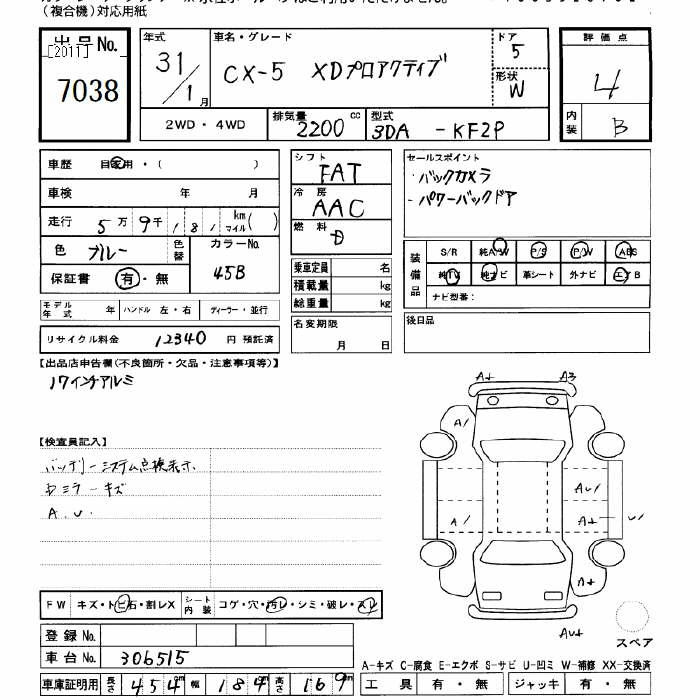 （複合機）対応用紙
出品No.
[2011]
7038
年式
31/1月
車名・グレード
CX-5 XDプロアクティブ
ドア
5
形状
W
評価点
4
内装
B
2WD・4WD
排気量
2200cc
型式
3DA -KF2P
車歴 自家用・( )
車検 年 月
走行 5万9千181 km マイル( )
色 ブルー
色替
カラーNo.
45B
保証書 有・無
モデル年式 年 ハンドル 左・右 ディーラー・並行
リサイクル料金 12340 円 預託済
シフト
FAT
冷房
AAC
燃料
D
乗車定員 名
積載量 kg
総重量 kg
名変期限
月 日
セールスポイント
・バックカメラ
・パワーバックドア
装備品
S/R 純A/W P/S P/W ABS
純TV 純ナビ 革シート 外ナビ エアB
ナビ型番：
後日品
【出品店申告欄(不良箇所・欠品・注意事項等)】
17インチアルミ
【検査員記入】
バッテリーシステム点検表示
ミラーキズ
A.U.
A3
A/
A/
U/
FW キズ・トビ石・割レX
シート内装 コゲ・穴・汚レ・シミ・破レ・スレ
登録No.
車台No. 306515
スペア
A-キズ C-腐食 E-エクボ S-サビ U-凹ミ W-補修 XX-交換済
車庫証明用 長さ 454cm 幅 184cm 高さ 169cm
工具 有・無 ジャッキ 有・無